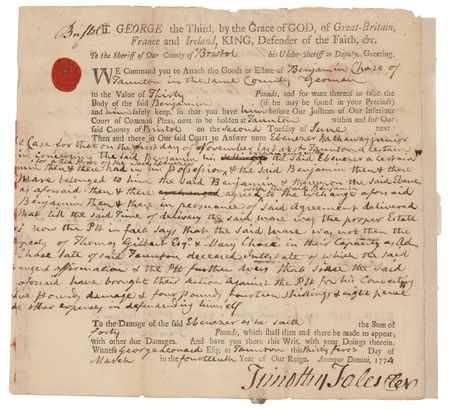 Bristol SS. GEORGE the Third, by the Grace of GOD, of Great-Britain,
France and Ireland, KING, Defender of the Faith, &c.
To the Sheriff of Our County of Bristol his Under-Sheriff or Deputy, Greeting.
WE Command you to Attach the Goods or Estate of Benjamin Chase of
Taunton in the same County Yeoman
to the Value of Thirty Pounds, and for want thereof to take the
Body of the said Benjamin (if he may be found in your Precinct)
and him safely keep, so that you have him before Our Justices of Our Inferiour
Court of Common Pleas, next to be holden at Taunton within and for Our
said County of Bristol on the second Tuesday of June next:
Then and there in Our said Court to Answer unto Ebenezer Hathaway junior
Case for that on the first day of November last at Taunton a certain
the said Benjamin in the said Ebenezer a certain
then & there had in his Possession & the said Benjamin then & there
Mare belonged to him the said Benjamin & thereupon the said
as aforesaid then & there agreed to the exchange aforesaid
Benjamin then & there in persuance of said Agreement delivered
that till the said Time of delivery the said mare was the proper Estate
now the Plt in fact says that the said Mare was not then the
of Thomas Gilbert Esqr & Mary Chase in their Capacity as Ad
Chase late of said Taunton deceased Intestate of which the said
& affirmation & the Plt further Avers that since the said
aforesaid have brought their action Against the Plt for his
Pounds damage & four Pounds fourteen Shillings & eight pence
other expences in defending himself
To the Damage of the said Ebenezer as he saith the Sum of
Forty Pounds, which shall then and there be made to appear,
with other due Damages. And have you there this Writ, with your Doings therein.
Witness George Leonard Esq; at Taunton this thirty first Day of
March in the fourteenth Year of Our Reign. Annoque Domini, 1774
Timothy Fales Cler